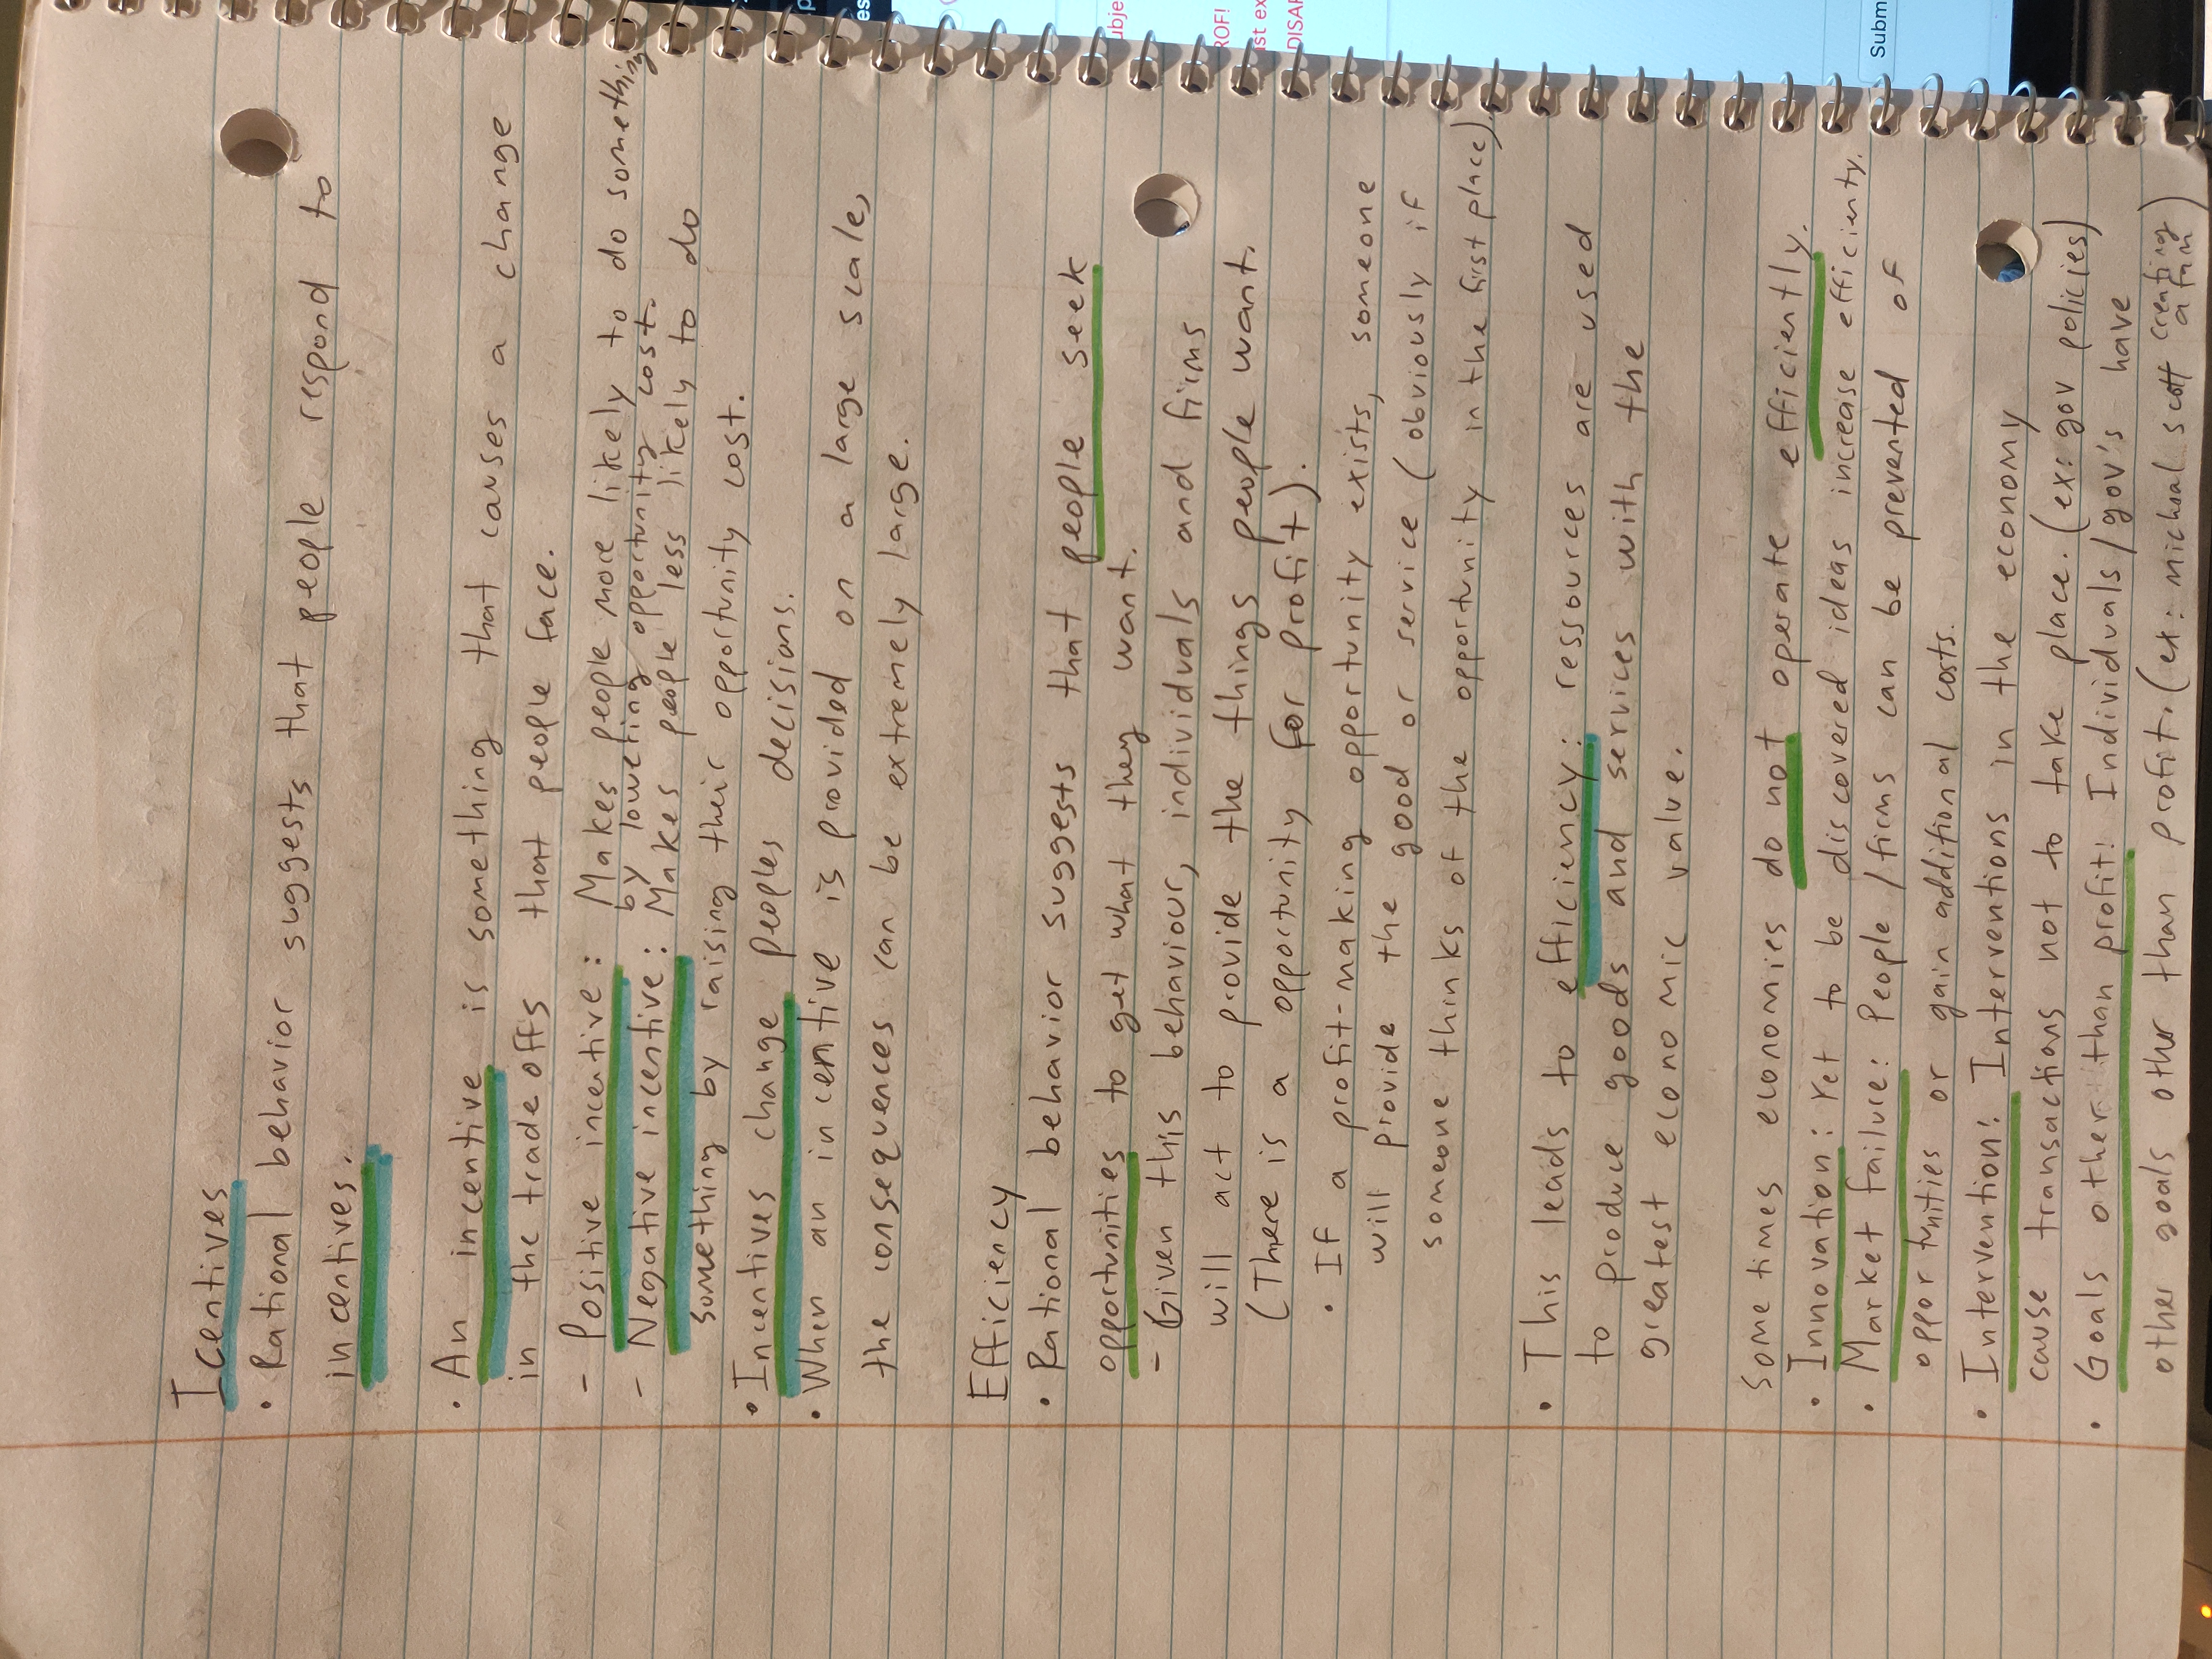 Icentives
• Rational behavior suggests that people respond to
incentives.
• An incentive is something that causes a change
in the tradeoffs that people face.
- Positive incentive: Makes people more likely to do something
by lowering opportunity cost.
- Negative incentive: Makes people less likely to do
something by raising their opportunity cost.
• Incentives change peoples decisions.
• When an incentive is provided on a large scale,
the consequences can be extremely large.
Efficiency
• Rational behavior suggests that people seek
opportunities to get what they want.
- Given this behaviour, individuals and firms
will act to provide the things people want.
(There is a opportunity for profit).
• If a profit-making opportunity exists, someone
will provide the good or service (obviously if
someone thinks of the opportunity in the first place)
• This leads to efficiency: ressources are used
to produce goods and services with the
greatest economic value.
Some times economies do not operate efficiently.
• Innovation: Yet to be discovered ideas increase efficienty.
• Market failure: People/firms can be prevented of
opportunities or gain additional costs.
• Intervention: Interventions in the economy
cause transactions not to take place. (ex: gov policies)
• Goals other than profit: Individuals/gov's have
other goals other than profit. (ex: michael scott creating
a fun
)
ubje
ROF!
st ex
DISAP
Subm
es